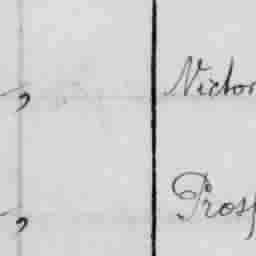 , Victor
, Prosp